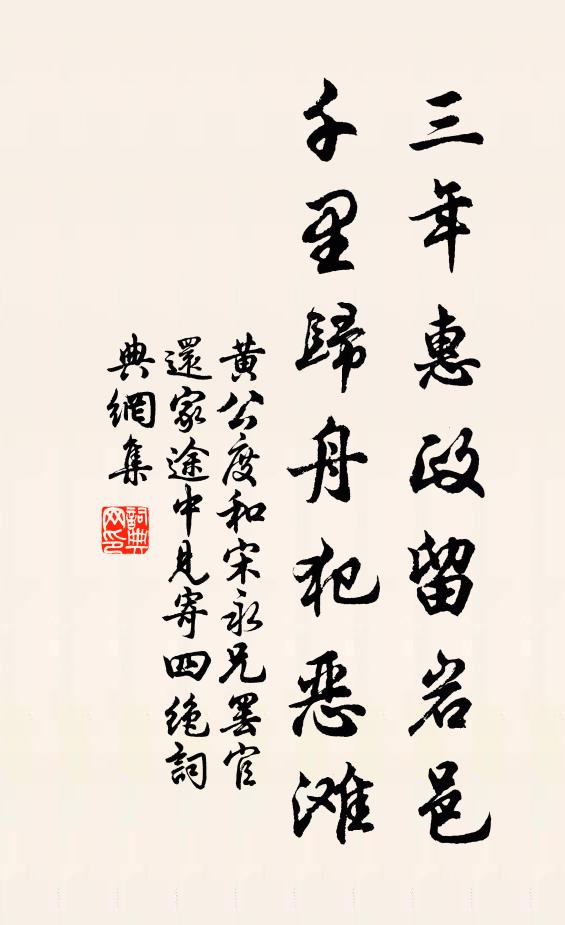 三年惠政留岩邑
千里歸舟犯恶滩
黄公度和宋永兄罢官
還家途中見寄四绝詞
典網集
詞典
网印